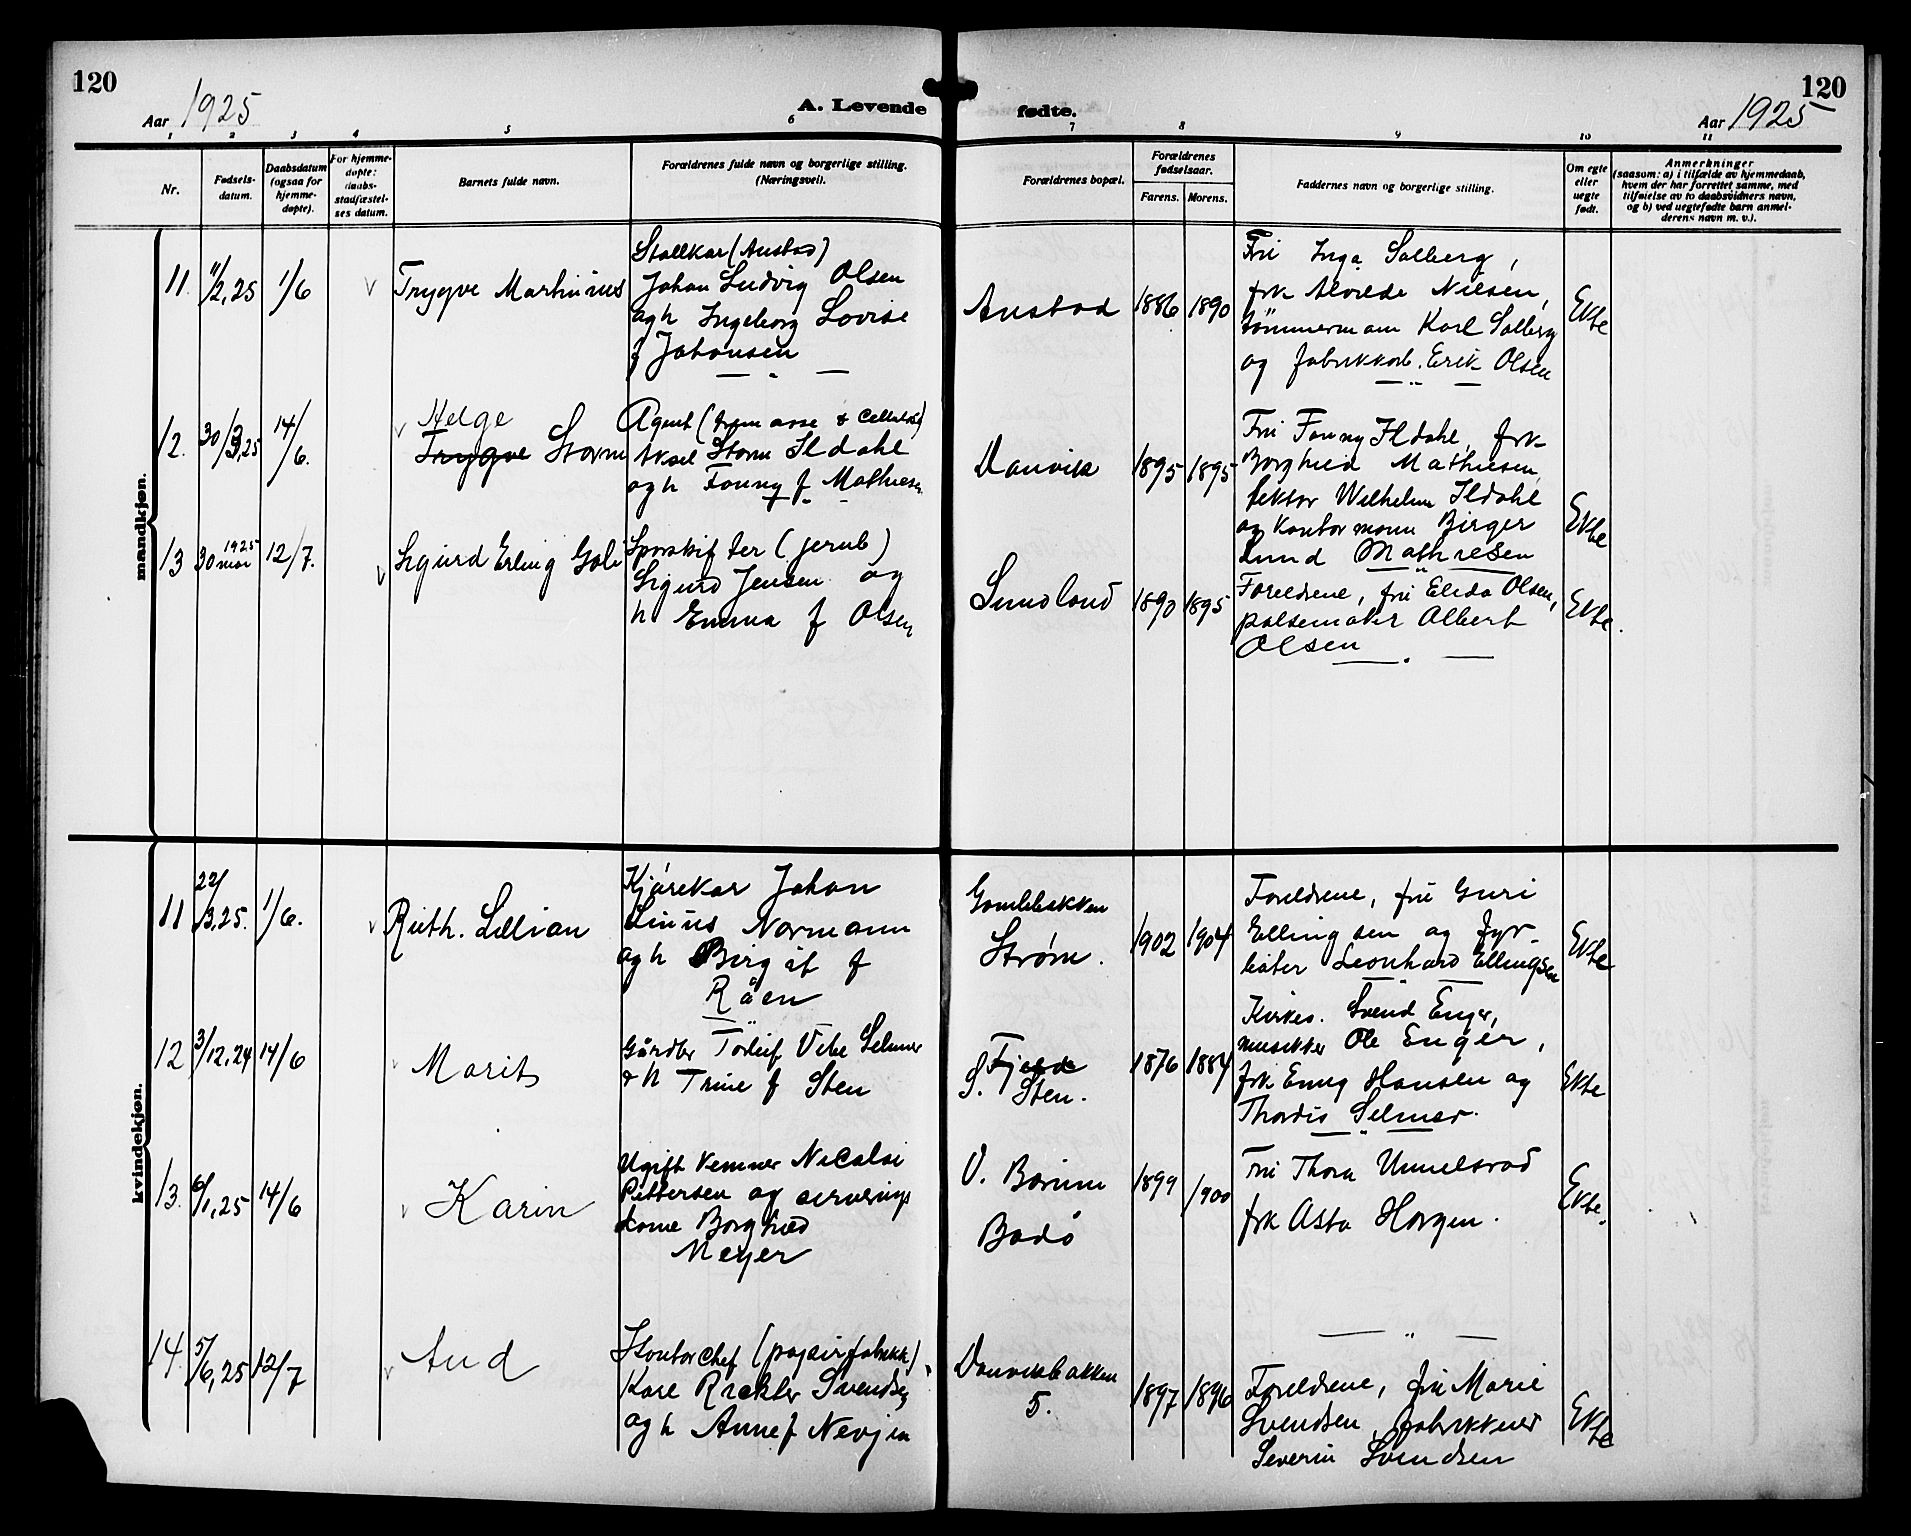 120
Aar 1925
A. Levende
fødte.
Aar 1925
120
1 2 3 4 5 6 7 8 9 10 11
Nr.
Fødsels-
datum.
Daabsdatum
(ogsaa for
hjemme-
døpte).
For hjemme-
døpte:
daabs-
stadfæstel-
ses datum.
Barnets fulde navn.
Forældrenes fulde navn og borgerlige stilling.
(Næringsvei).
Forældrenes bopæl.
Forældrenes
fødselsaar.
Farens. Morens.
Faddernes navn og borgerlige stilling.
Om egte
eller
uegte
født.
Anmerkninger
(saasom: a) i tilfælde av hjemmedaab,
hvem der har forrettet samme, med
tilføielse av to daabsvidners navn,
og b) ved uegtefødte barn anmel-
derens navn m. v.).
mandkjøn.
11. 11/2,25 1/6
Trygve Martinius
Stallkar (Austad)
Johan Ludvig Olsen
og h Ingeborg Lovise
f Johansen
Austad
1886 1890
Fru Inga Solberg,
frk Alvilde Nilsen,
tømmermann Karl Solberg
og fabrikkarb. Erik Olsen
Ekte
12. 30/3,25 14/6.
Helge
Trygve Storm
Agent (tremasse & Cellulose)
Aksel Storm Ildahl
og h Fanny f Mathiesen
Danvik
1895 1895
Fru Fanny Ildahl, frk
Borghild Mathiesen,
lektor Wilhelm Ildahl
og kontormann Birger
Lund Mathiesen
Ekte
13 30 mar 1925 12/7.
Sigurd Erling
Sporskifter (jernb)
Sigurd Jensen og
h Emma f Olsen
Sundland
1890 1895
Foreldrene, fru Elida Olsen,
pølsemaker Albert
Olsen
Ekte.
kvindekjøn.
11 22/3,25. 1/6.
Ruth. Lillian
Kjørekar Johan
Linius Normann
og h Birgit f
Råen
Gamlebakken
Strøm.
1902 1904
Foreldrene, fru Guri
Ellingsen og fyr-
bøter Leonhard Ellingsen
Ekte
12 3/12,24 14/6
Marit
Gårdbr Torleif Vibe Selmer
& h Trine f Sten
Fjeld
S. Sten.
1876 1884
Kirkes. Svend Enger,
musikker Ole Enger,
frk Enny Hansen og
Thordis Selmer.
Ekte
13. 6/1,25 14/6
Karin
Ugift Kemner Nicolai
Pettersen og serverings
dame Borghild
Meyer
V. Bærum
Bodø
1899 1900
Fru Thora Ummelsrod
frk Asta Horgen.
Ekte.
14. 5/6,25 12/7
Aud
Kontorchef (papirfabrikk)
Kåre Richter Svendsen
og h Anne f Nevjen
Danvikbakken
5.
1897 1896
Foreldrene, fru Marie
Svendsen, fabrikkeier
Severin Svendsen
Ekte